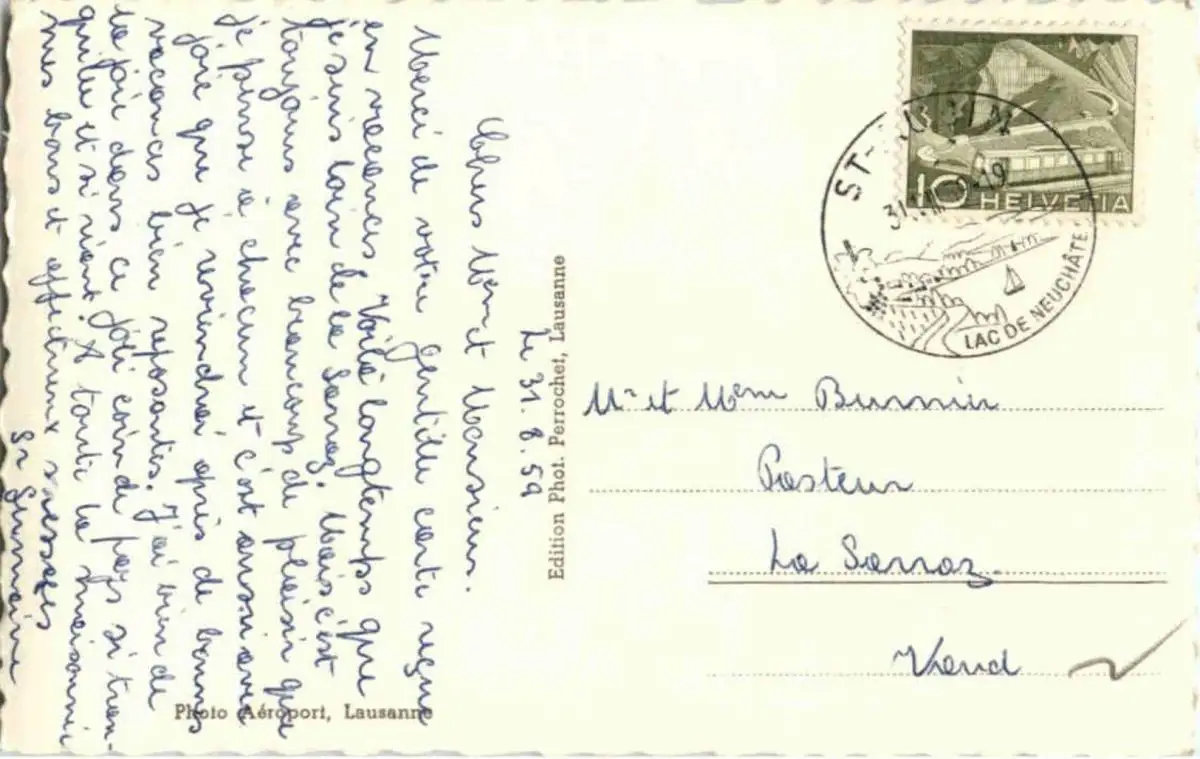 Le 31.8.59
Chers Mme et Monsieur.
Merci de votre gentille carte reçue
en vacances. Voilà longtemps que
je suis loin de La Sarraz. Mais c'est
toujours avec beaucoup de plaisir que
je pense à chacun et c'est aussi avec
joie que je reviendrai après de bonnes
vacances bien reposantes. J'ai bien de
la joie dans ce joli coin de pays si tran-
quille et si riant. A toute la maisonnée
mes bons et affectueux messages
Sr Germaine
Photo Aéroport, Lausanne
Edition Phot. Perrochet, Lausanne
10 HELVETIA
ST-AUBIN
31
LAC DE NEUCHÂTEL
Mr et Mme Burnier
Pasteur
La Sarraz
Vaud